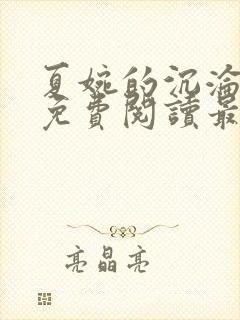 夏婉的沉淪
免費閱讀最
亮晶亮